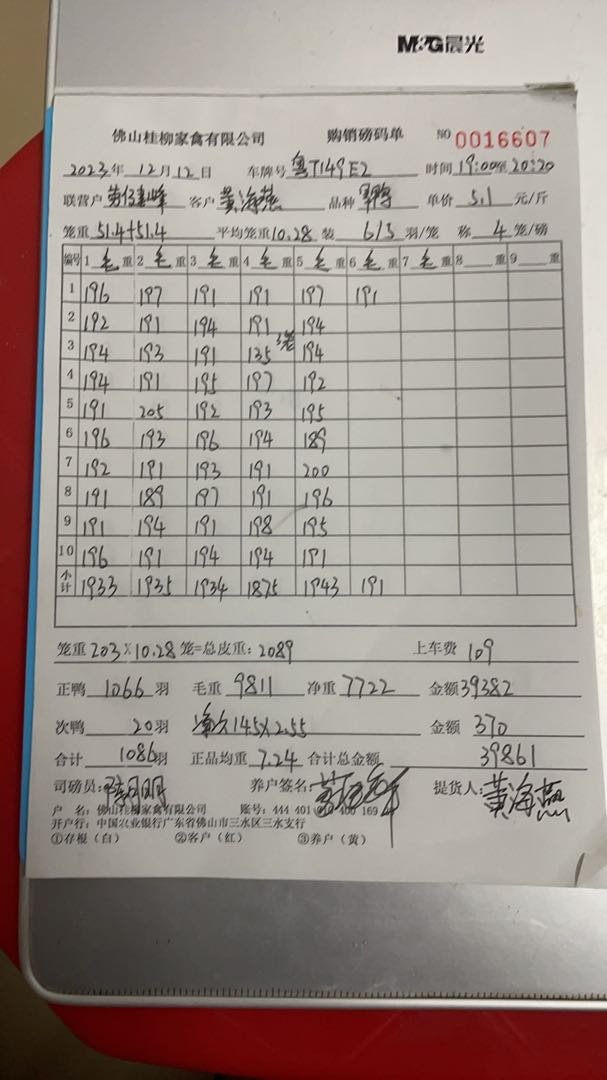 M&G晨光
佛山桂柳家禽有限公司 购销磅码单 NO 0016607
2023年 12月12日 车牌号 粤T149E2 时间 19:00至20:20
联营户 客户 黄海燕 品种 单价 5.1 元/斤
笼重 51.4+51.4 平均笼重 10.28 装 6/5 羽/笼 称 4 笼/磅
编号 1 毛 重 2 毛 重 3 毛 重 4 毛 重 5 毛 重 6 毛 重 7 毛 重 8 重 9 重
1 196 197 191 191 197 191
2 192 191 194 191 194
3 194 193 191 135 194
4 194 191 195 197 192
5 191 205 192 193 195
6 196 193 196 194 189
7 192 191 193 191 200
8 191 189 197 191 196
9 191 194 191 198 195
10 196 191 194 194 191
小计 1933 1935 1934 1875 1943 191
笼重 203×10.28 笼=总皮重: 2089 上车费 109
正鸭 1066 羽 毛重 9811 净重 7722 金额 39382
次鸭 20 羽 145×2.55 金额 370
合计 1086 羽 正品均重 7.24 合计总金额 39861
司磅员: 养户签名: 提货人: 黄海燕
户 名: 佛山桂柳家禽有限公司 账号: 444 401 010 400 169
开户行: 中国农业银行广东省佛山市三水区三水支行
①存根（白） ②客户（红） ③养户（黄）